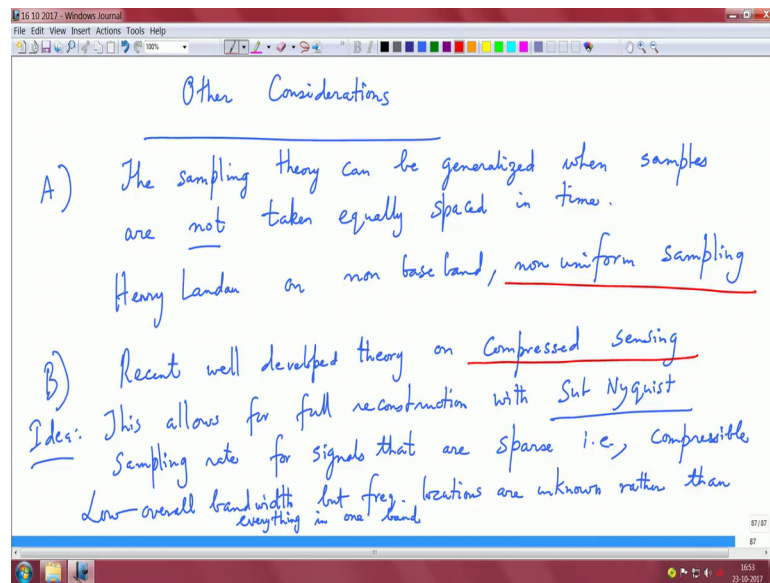 16 10 2017 - Windows Journal
File Edit View Insert Actions Tools Help
100%
B I
Other Considerations
A) The sampling theory can be generalized when samples
are not taken equally spaced in time.
Henry Landau on non base band, non uniform sampling
B) Recent well developed theory on Compressed Sensing
Idea: This allows for full reconstruction with Sub Nyquist
Sampling rate for signals that are sparse i.e., compressible
Low-overall bandwidth but freq. locations are unknown rather than
everything in one band
87/87
87
16:53
23-10-2017